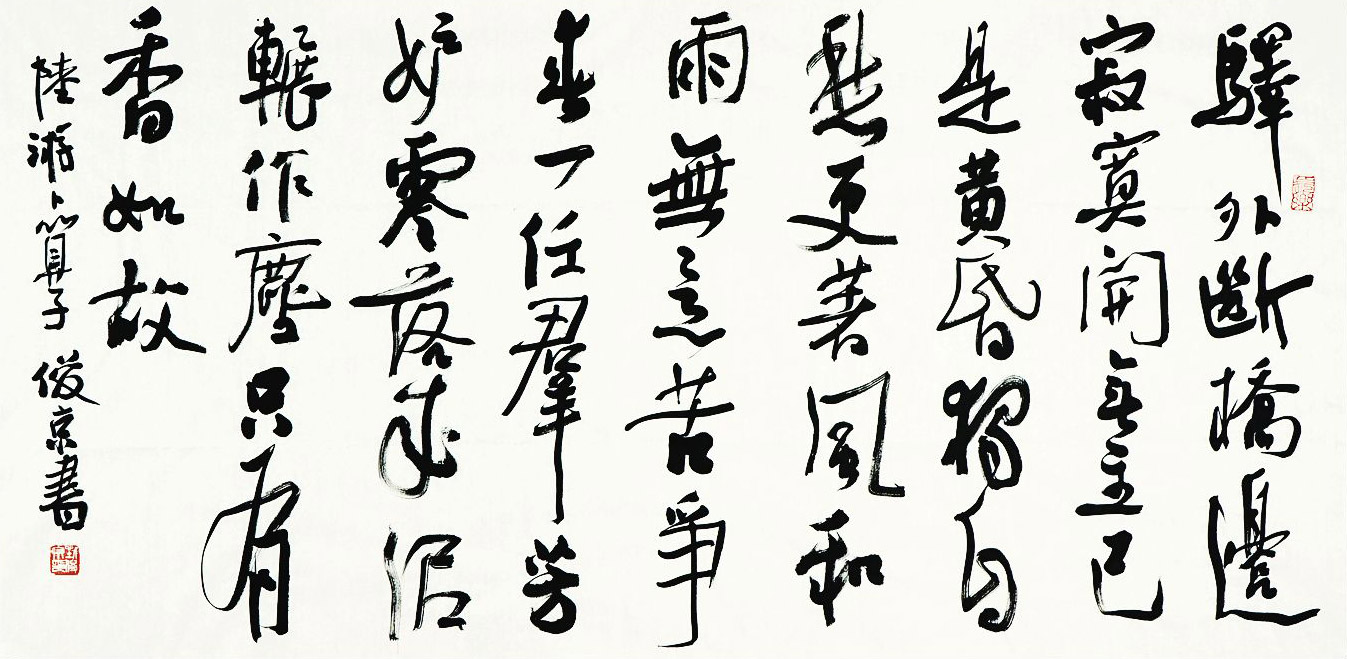 驛外斷橋邊
寂寞開無主已
是黃昏獨自
愁更著風和
雨無意苦爭
春一任羣芳
妒零落成泥
輾作塵只有
香如故
陸游卜算子 俊京書